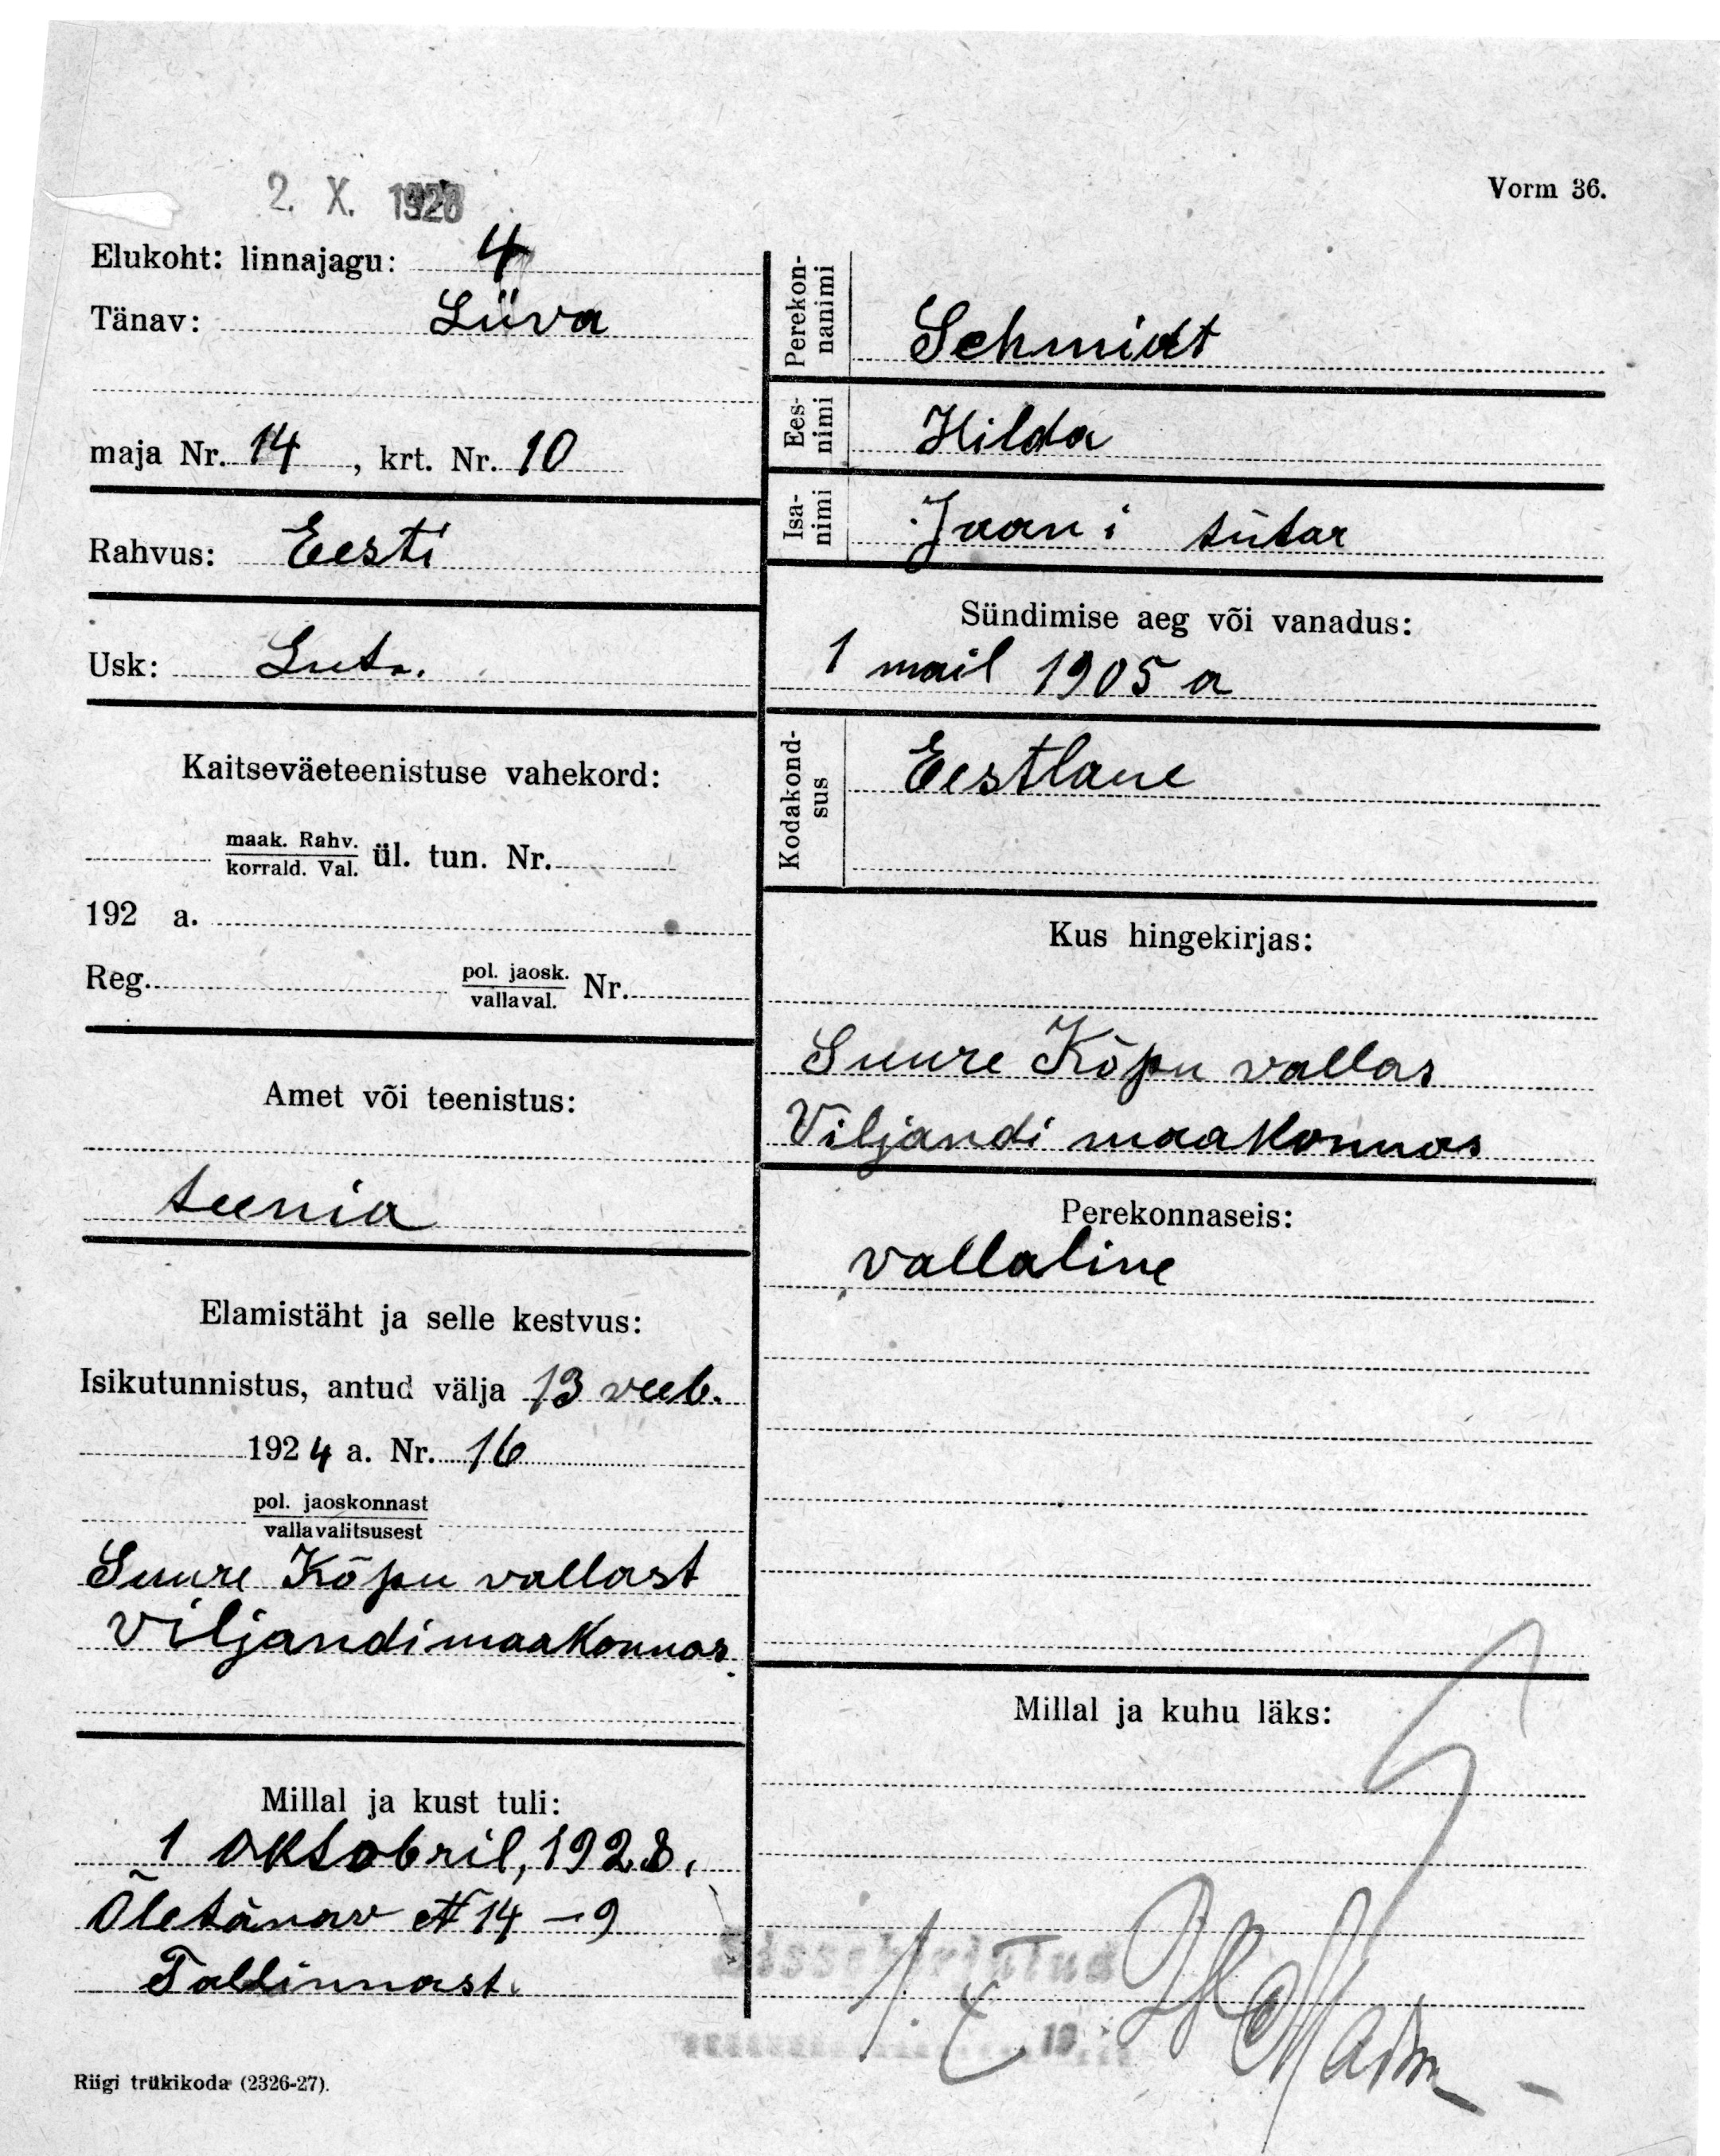 2. X. 1928
Vorm 36.
Elukoht: linnajagu: 4
Tänav: Liiva
maja Nr. 14, krt. Nr. 10
Rahvus: Eesti
Usk: Lut.
Kaitseväeteenistuse vahekord:
maak. Rahv.
korrald. Val. ül. tun. Nr.
192 a.
Reg. pol. jaosk.
vallaval. Nr.
Amet või teenistus:
teenia
Elamistäht ja selle kestvus:
Isikutunnistus, antud välja 13 veeb.
1924 a. Nr. 16
pol. jaoskonnast
vallavalitsusest
Suure Kõpu vallast
Viljandi maakonnas
Millal ja kust tuli:
1 oktobril, 1928.
Õle tänav № 14 – 9
Tallinnast.
Riigi trükikoda (2326-27).
Perekon-
nanimi Schmidt
Ees-
nimi Hilda
Isa-
nimi Jaani tütar
Sündimise aeg või vanadus:
1 mail 1905 a
Kodakond-
sus Eestlane
Kus hingekirjas:
Suure Kõpu vallas
Viljandi maakonnas
Perekonnaseis:
vallaline
Millal ja kuhu läks:
Sissekirjutud
1. X 19